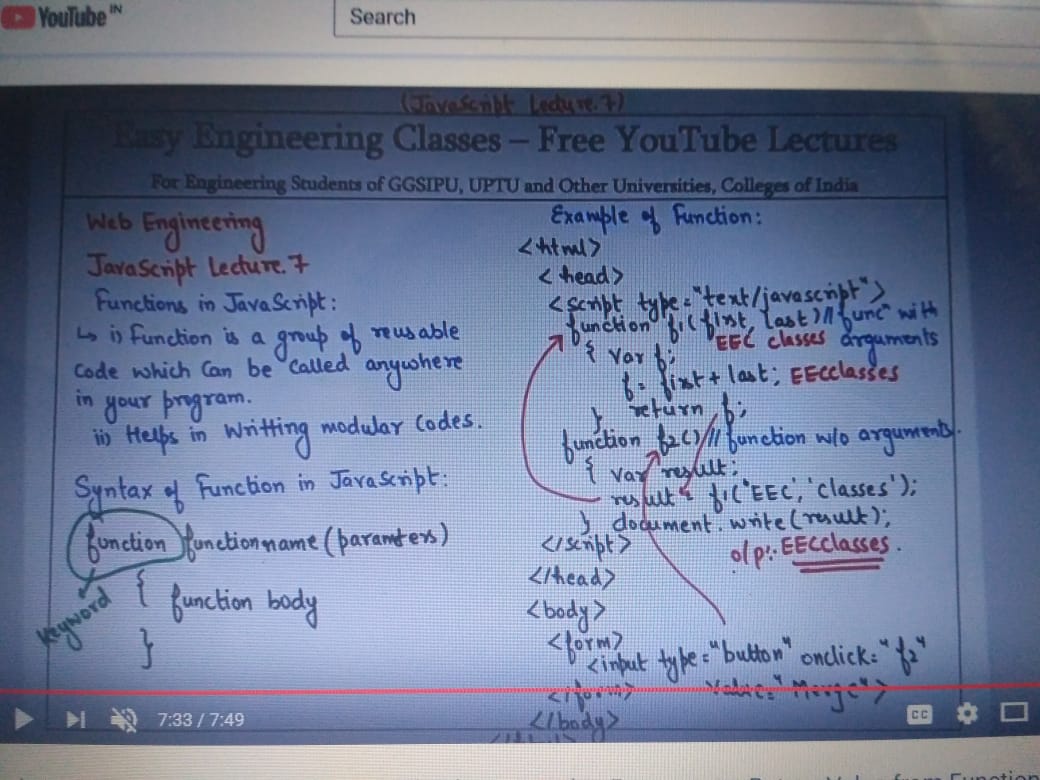 YouTube IN
Search
(JavaScript Lecture.7)
Easy Engineering Classes – Free YouTube Lectures
For Engineering Students of GGSIPU, UPTU and Other Universities, Colleges of India
Web Engineering
JavaScript Lecture.7
Functions in JavaScript:
↳ i) Function is a group of reusable
code which Can be called anywhere
in your program.
ii) Helps in Writting modular Codes.
Syntax of Function in JavaScript:
function functionname (paramters)
keyword
{ function body
}
Example of Function:
<html>
<head>
<script type="text/javascript">
function f1(first, last) // func" with
EEC classes arguments
{ var f;
f= first + last; EECclasses
} return f;
function f2() // function w/o arguments.
{ var result;
result = f1("EEC", 'classes');
} document.write(result);
</script>
o/p:- EECclasses.
</head>
<body>
<form>
<input type="button" onclick="f2"
value="Merge">
</form>
</body>
7:33 / 7:49
CC